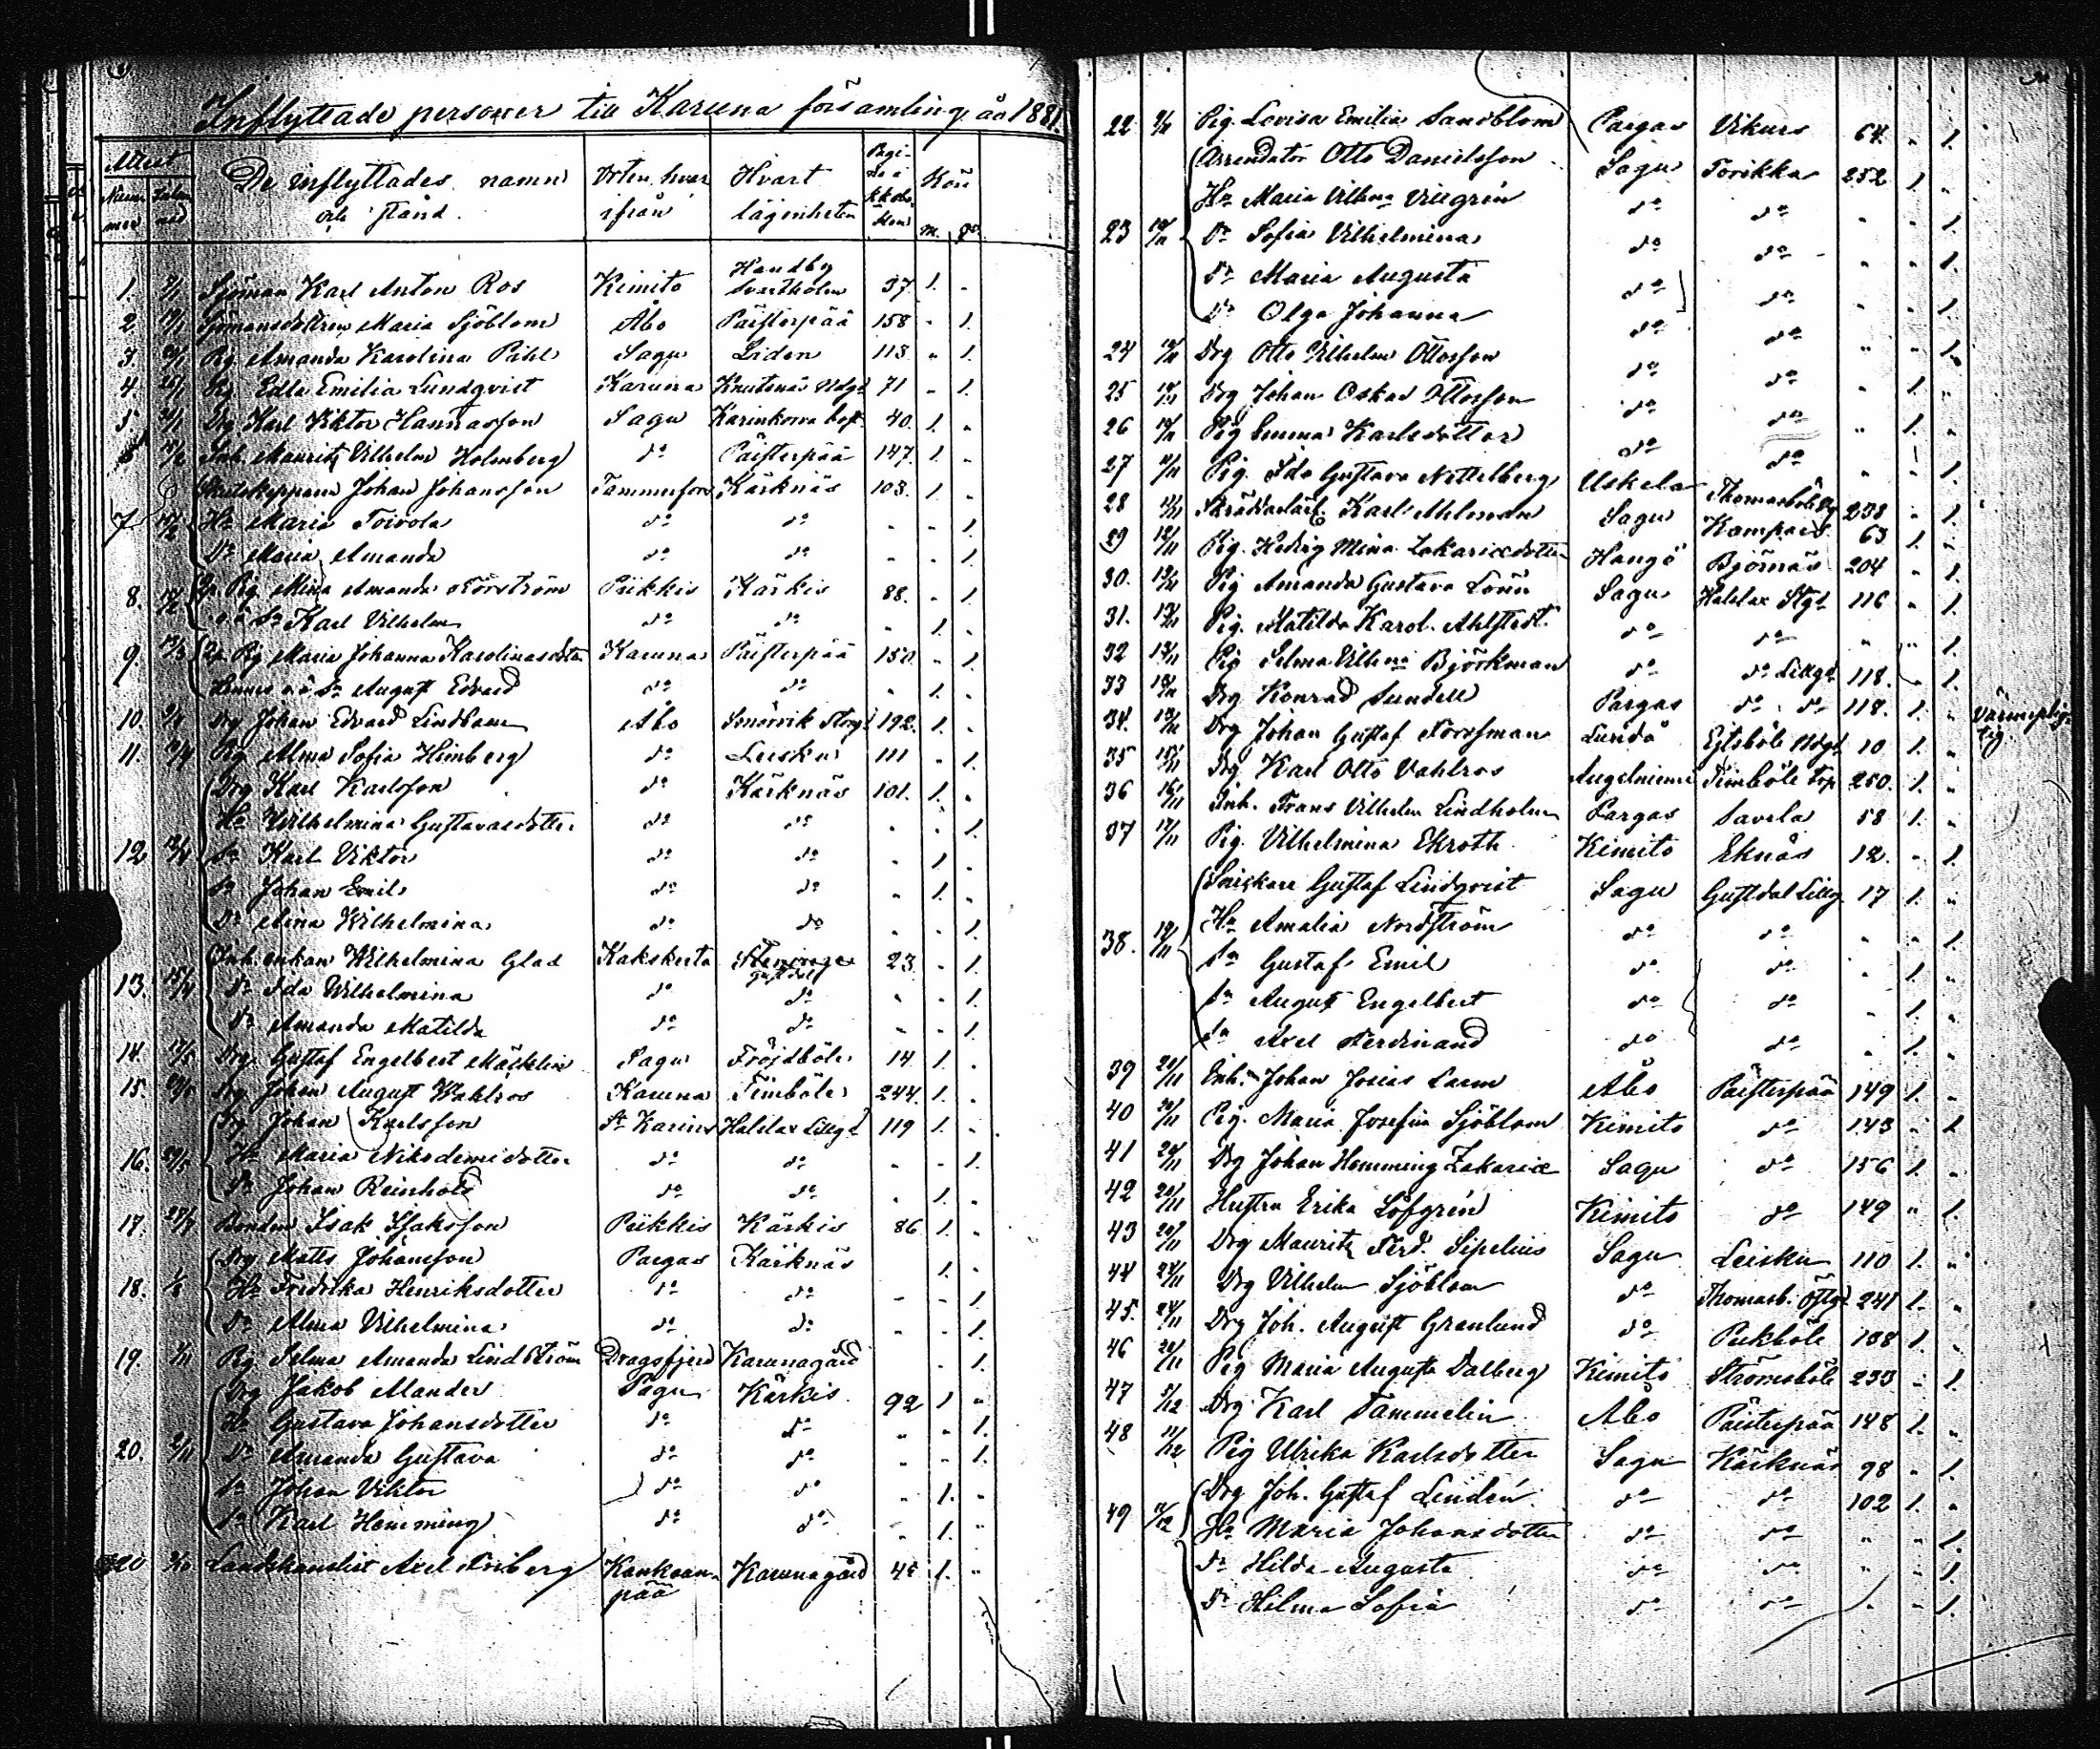 Inflyttade personer till Karuna församling år 1881.
Attest De inflyttades namn och stånd. Orten hvar ifrån Hvart lägenheten Kön
Num mer m. q.
1. 7/1 Sjöman Karl Anton Ros Kimito Handby Svartholm 37. 1. "
2. 19/1 Maria Sjöblom Åbo Päisterpää 158 " 1.
3. Pig. Amanda Karolina Påhl Sagu Liden 113. " 1.
4. 26/1 Pig. Edla Emilia Lundqvist Karuna Knutsnäs Ndgd 71 " 1.
5 Drg Karl Viktor Hannasson Sagu Karinkorva 40. 1. "
6 Inh. Mauritz Vilhelm Holmberg do Päisterpää 147. 1. "
Johan Johansson Tammerfors Kärknäs 103. 1. "
7 Hu Maria Toivola do do " " 1.
Dr Maria Amanda do do " " 1.
8. Pig. Mina Amanda Törström Piikkis Kärkis 88. " 1.
o ä Sn Karl Vilhelm do do 1. "
9. Pig Maria Johanna Karolinasdotter Karuna Päisterpää 150. " 1.
Hennes o ä Sn August Edvard do do " 1. "
10. Drg Johan Edvard Lindbom Åbo Smörvik Storgd 192. 1. "
11. Pig Alma Sofia Himberg do Leisku 111 " 1.
Drg Karl Karlsson do Kärknäs 101. 1. "
Hu Wilhelmina Gustavasdotter do do " " 1.
12 Sn Karl Viktor do do " 1. "
Sn Johan Emil do do " 1. "
Dr Aina Wilhelmina do do " " 1.
Inh. enkan Wilhelmina Glad Kakskerta Gustdal 23. " 1.
13. Dr Ida Wilhelmina do do " " 1.
Dr Amanda Matilda do do " " 1.
14. 17/5 Drg Gustaf Engelbert Mäkelin Sagu Fröjdböle 14 1. "
15. Drg Johan August Wahlros Karuna Timböle 244. 1. "
Drg Johan Karlsson St Karins Halslax Lillgd 119 1. "
16. Hu Maria Nikodemidotter do do " " 1.
Sn Johan Reinhold do do " 1. "
17. 27/7 Bonden Isak Isaksson Piikkis Kärkis 86 1. "
Drg Matts Johansson Pargas Kärknäs 1. "
18. 1/8 Hu Fredrika Henriksdotter do do " " 1.
Dr Alma Vilhelmina do do " " 1.
19. Pig Selma Amanda Lindström Dragsfjerd Karunagård " 1.
Drg Jakob Mander Sagu Kärkis 92 1 "
Hu Gustava Johansdotter do do " " 1.
20. 2/11 Dr Amanda Gustava do do " " 1.
Sn Johan Viktor do do " 1. "
Sn Karl Hemming do do " 1. "
20 Landskanslist Axel Friberg Kankaanpää Karunagård 45 1. "
22 Pig. Lovisa Emilia Sandblom Pargas Vikurs 64. " 1.
Arrendator Otto Danielsson Sagu Torikka 252. 1. "
Hu Maria Vilhna Villgrén do do " 1.
23 Dr Sofia Vilhelmina do do " " 1.
Dr Maria Augusta do do " " 1.
Dr Olga Johanna do do " " 1.
24 Drg Otto Vilhelm Ottosson do do " 1. "
25 Drg Johan Oskar Ottosson do do " 1. "
26 Pig Emma Karlsdotter do do " " 1.
27 Pig. Ida Gustava Nettelberg Uskela Thomasböle 238 " 1.
28 Karl Ahlman Sagu Kampais 63 1. "
29 Pig. Hedvig Mina Zakariædotter Hangö Björnäs 204 " 1.
30. Pig Amanda Gustava Lorin Sagu Halslax Stgd 116 " 1.
31. Pig. Matilda Karol. Ahlstedt do do " " 1.
32 Pig Selma Vilhna Björkman do do Lillgd 118. " 1.
33 Drg Konrad Sundell Pargas do do 118. 1. " Värnepligtig.
34. Drg Johan Gustaf Forssman Lundo Ejtsböle Ndgd 10 1. "
35 Drg Karl Otto Vahlros Angelniemi Timböle torp 250. 1. "
36 16/11 Inh. Frans Vilhelm Lindholm Pargas Savela 58 1. "
37 17/11 Pig. Vilhelmina Ekroth Kimito Eknäs 12. " 1.
Snickare Gustaf Lindqvist Sagu Gustdal Lillg 17 1. "
38. 19/11 Hu Amalia Nordström do do " " 1.
Sn Gustaf Emil do do " 1. "
Sn August Engelbert do do " 1. "
Sn Axel Ferdinand do do " 1. "
39 Inh. Johan Josias Larm Åbo Päisterpää 149 1. "
40 Pig. Maria Josefina Sjöblom Kimito do 143 " 1
41 Drg Johan Hemming Zakariæ Sagu do 156 1. "
42 Hustru Erika Löfgrén Kimito do 149 " 1.
43 Drg Mauritz Ferd. Sipelius Sagu Leisku 110 1. "
44 Drg Vilhelm Sjöblom do Thomasb. Östgd 241 1. "
45. Drg Joh. August Granlund do Pukböle 108 1. "
46 Pig Maria Augusta Dalberg Kimito Strömsböle 233 " 1.
47 Drg Karl Tammelin Åbo Päisterpää 148 1. "
48 Pig Ulrika Karlsdotter Sagu Kärknäs 98 " 1.
Drg Joh. Gustaf Lindén do do 102 1. "
49 Hu Maria Johansdotter do do " " 1.
Dr Hilda Augusta do do " " 1.
Dr Hilma Sofia do do " " 1.